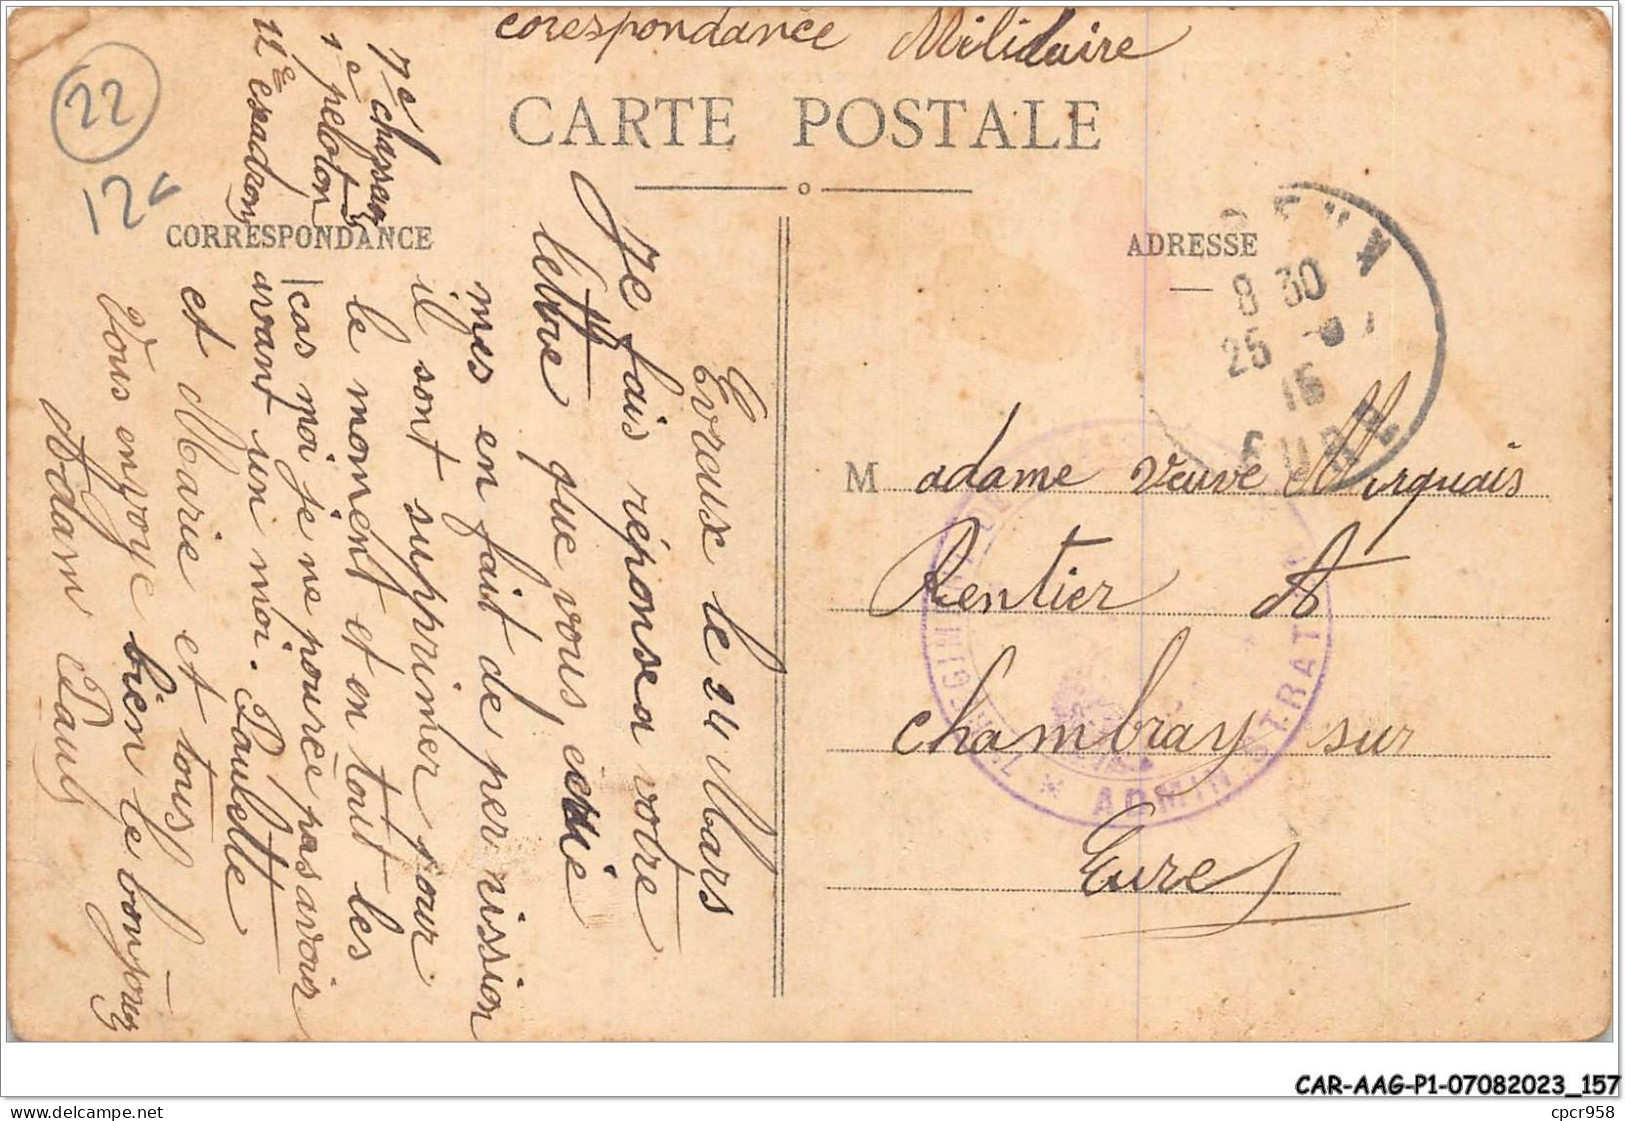 corespondance Militaire
CARTE POSTALE
CORRESPONDANCE
ADRESSE
22
12€
7e chasseur
1e peloton
11e escadron
Evreux le 24 Mars
Je fais réponse a votre
lettre que vous
mes en fait de permission
il sont supprimer pour
le moment et en tout les
cas moi je ne pource pas avoir
avant un moi. Paulette
et Marie et tous
vous envoye bien le bonjour
Adam Paul
8 30
25
EURE
Madame Veuve Marquais
Rentier A
chambray sur
Eure
ADMINISTRAT
CAR-AAG-P1-07082023_157
delcampe.net
cpcr958